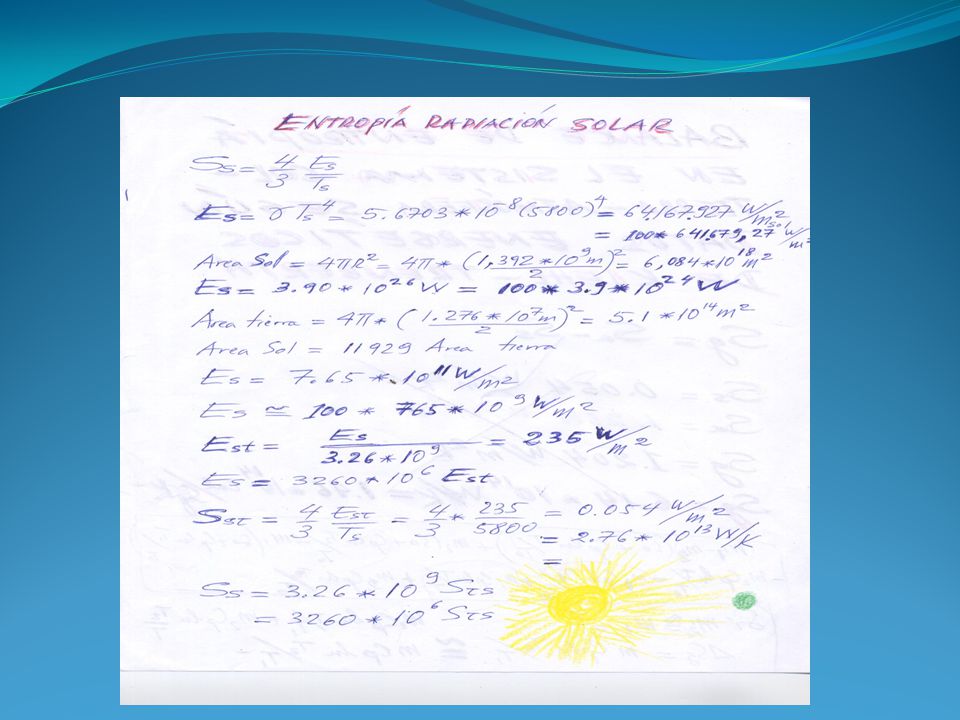 ENTROPÍA RADIACIÓN SOLAR
Ss = 4/3 Es/Ts
Es = σTs⁴ = 5.6703*10⁻⁸(5800)⁴ = 64.167.927 W/m²sol
= 100* 641.679,27 W/m²
Area Sol = 4πR² = 4π* (1,392*10⁹m/2)² = 6,084*10¹⁸m²
Es = 3.90*10²⁶W = 100*3.9*10²⁴W
Área tierra = 4π*(1.276*10⁷m/2)² = 5.1*10¹⁴m²
Area Sol = 11929 Area tierra
Es = 7.65*10¹¹W/m²
Es ≃ 100*765*10⁹W/m²
Est = Es/3.26*10⁹ = 235W/m²
Es = 3260*10⁶ Est
Sst = 4/3 Est/Ts = 4/3*235/5800 = 0.054 W/m²
= 2.76*10¹³W/K
=
Ss = 3.26*10⁹ Sts
= 3260*10⁶ Sts